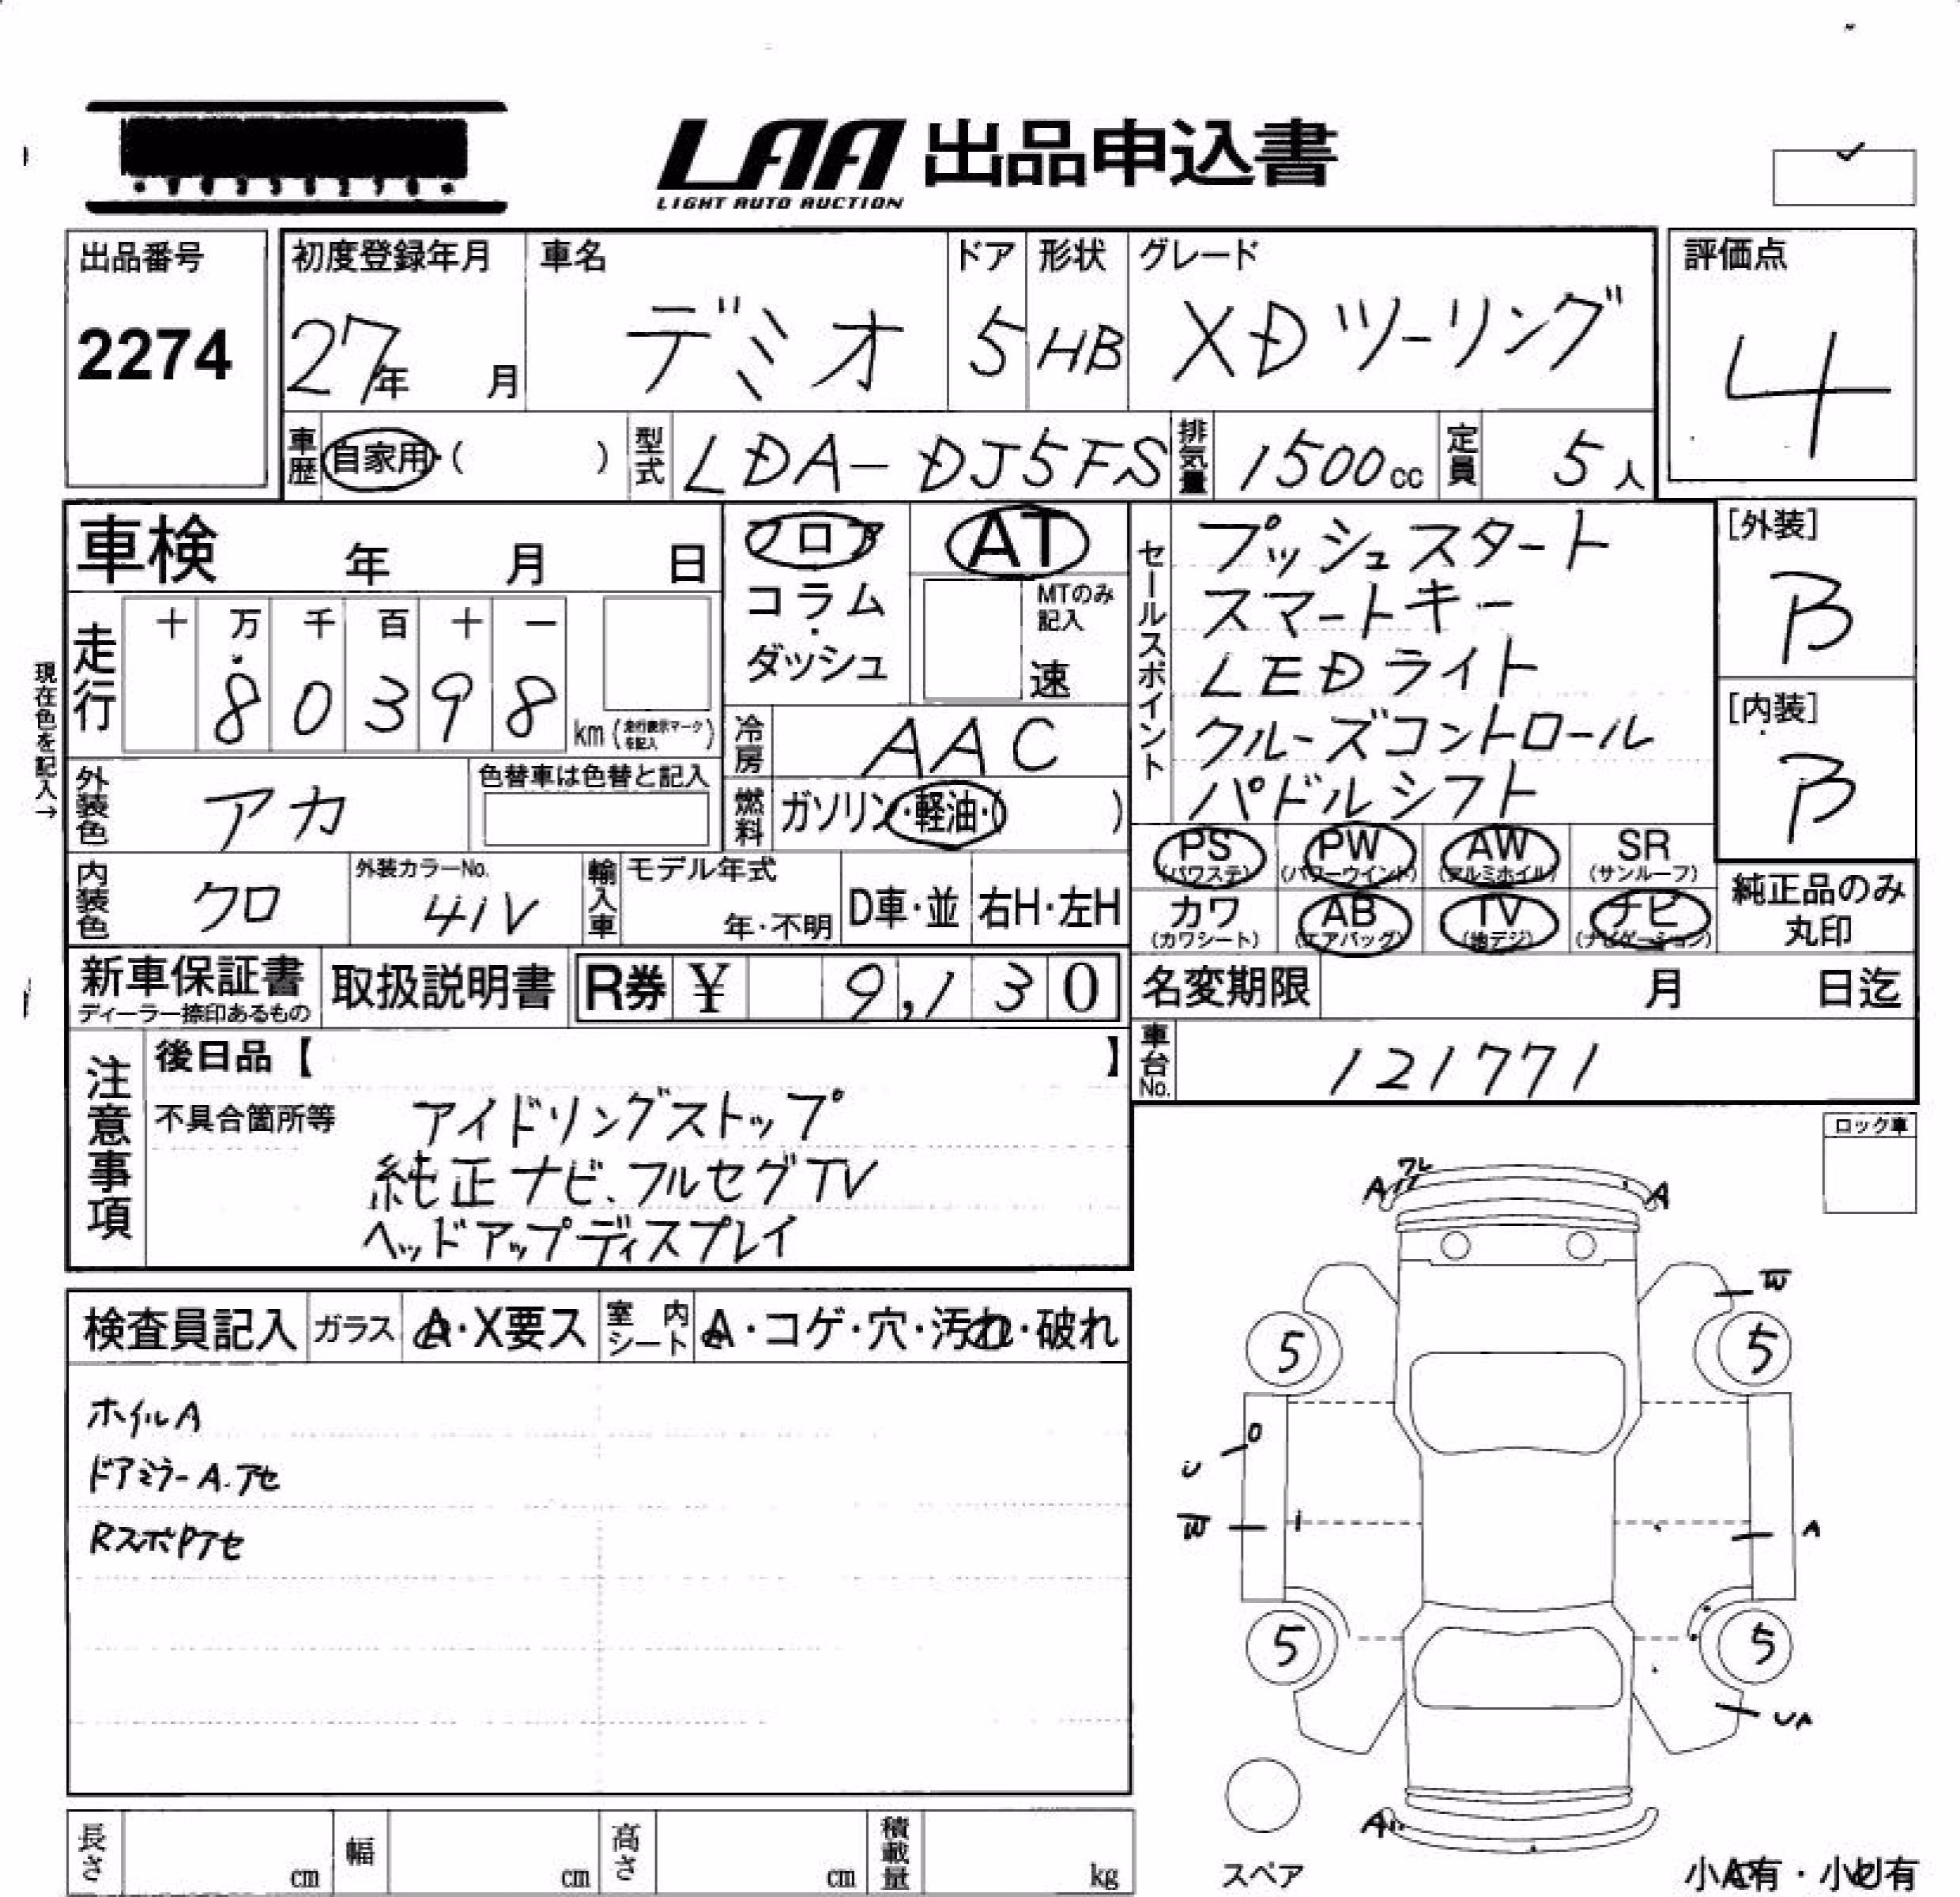 LAA 出品申込書
LIGHT AUTO AUCTION
出品番号
2274
初度登録年月
27年 月
車名
デミオ
ドア
5
形状
HB
グレード
XDツーリング
評価点
4
車歴 自家用・( )
型式 LDA-DJ5FS
排気量 1500cc
定員 5人
車検 年 月 日
フロア
コラム・ダッシュ
AT
MTのみ記入
速
セールスポイント
プッシュスタート
スマートキー
LEDライト
クルーズコントロール
パドルシフト
[外装]
B
[内装]
B
現在色を記入→
走行
十 万 千 百 十 一
8 0 3 9 8
km (走行表示マークを記入)
冷房 AAC
外装色 アカ
色替車は色替と記入
燃料 ガソリン・軽油・( )
内装色 クロ
外装カラーNo.
41V
輸入車
モデル年式
年・不明
D車・並
右H・左H
PS (パワステ)
PW (パワーウインド)
AW (アルミホイル)
SR (サンルーフ)
カワ (カワシート)
AB (エアバッグ)
TV (地デジ)
ナビ (ナビゲーション)
純正品のみ
丸印
新車保証書
ディーラー捺印あるもの
取扱説明書
R券 ¥ 9,130
名変期限 月 日迄
車台No. 121771
注意事項
後日品【 】
不具合箇所等
アイドリングストップ
純正ナビ、フルセグTV
ヘッドアップディスプレイ
ロック車
検査員記入
ガラス A・X要ス
室内シート A・コゲ・穴・汚れ・破れ
ホイルA
ドアミラーA.アセ
RスポPアセ
A
A
W
5
5
U
W
A
5
5
UA
A
スペア
小A有・小U有
長さ cm
幅 cm
高さ cm
積載量 kg